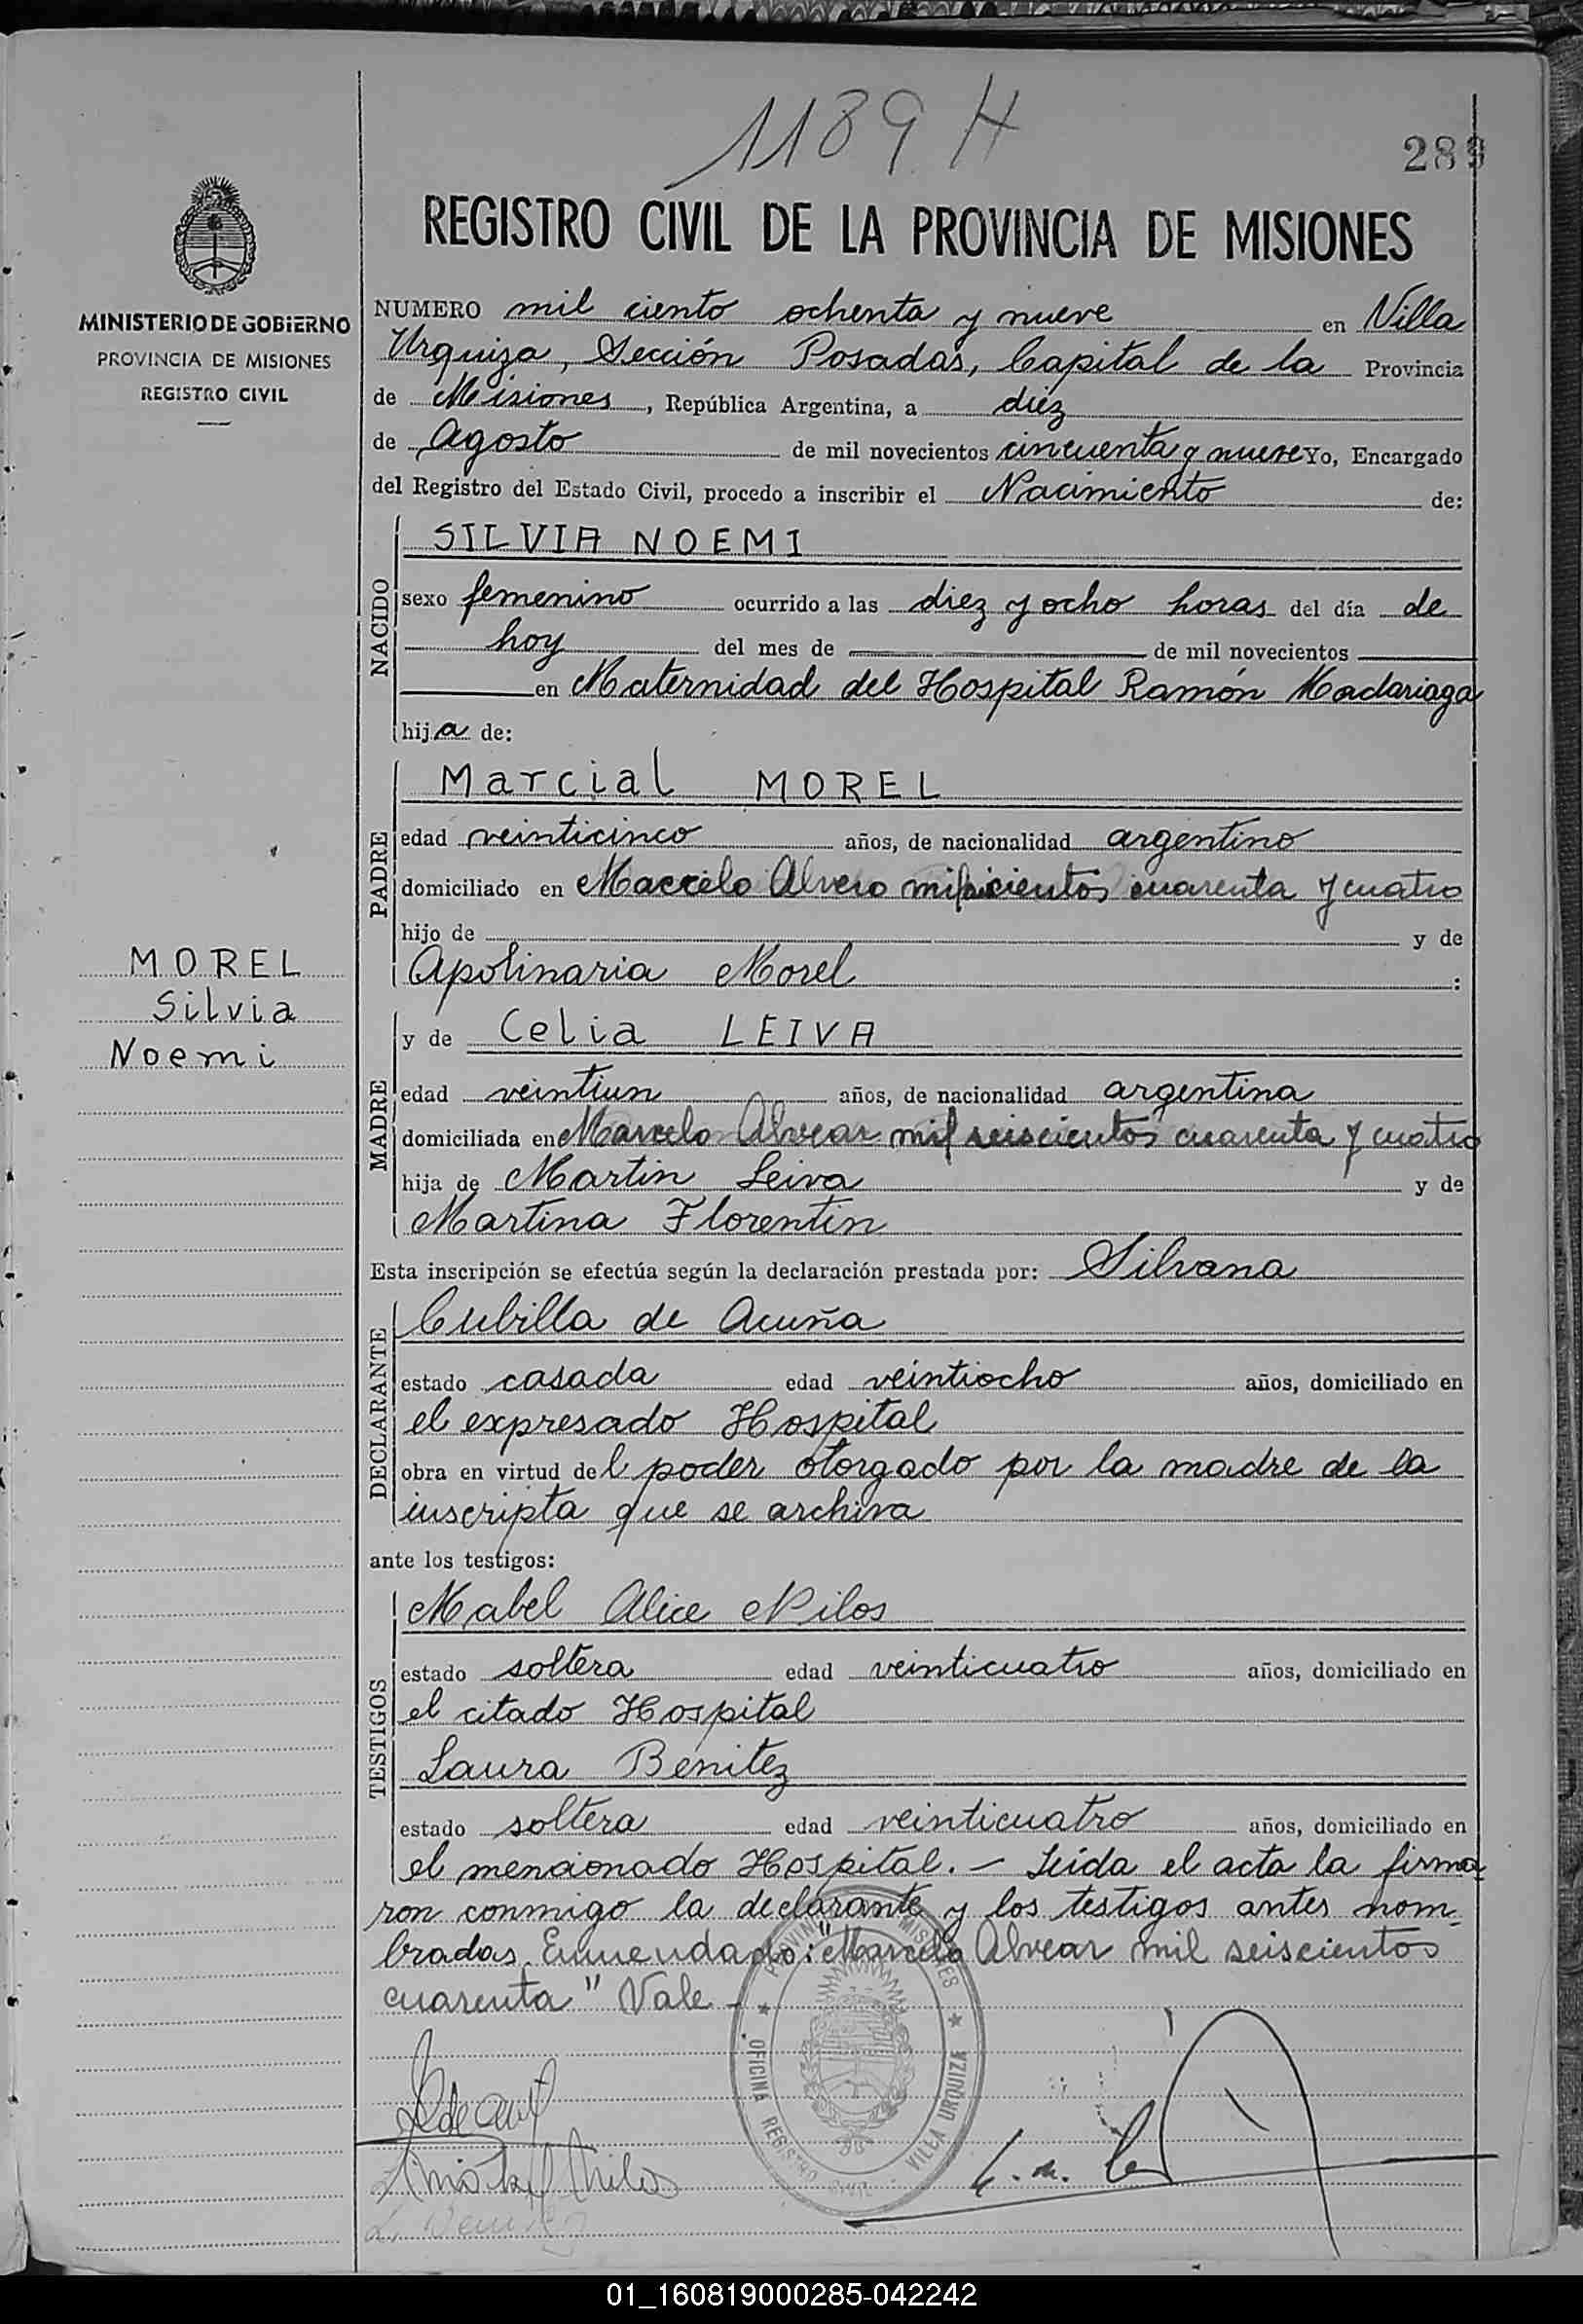 1189 H
289
REGISTRO CIVIL DE LA PROVINCIA DE MISIONES
MINISTERIO DE GOBIERNO
PROVINCIA DE MISIONES
REGISTRO CIVIL
NUMERO mil ciento ochenta y nueve en Villa
Urquiza, Sección Posadas, Capital de la Provincia
de Misiones, República Argentina, a diez
de Agosto de mil novecientos cincuenta y nueve Yo, Encargado
del Registro del Estado Civil, procedo a inscribir el Nacimiento de:
NACIDO
SILVIA NOEMI
sexo femenino ocurrido a las diez y ocho horas del día de
hoy del mes de de mil novecientos
en Maternidad del Hospital Ramón Madariaga
hija de:
PADRE
Marcial MOREL
edad veinticinco años, de nacionalidad argentino
domiciliado en Marcelo Alvear mil seiscientos cuarenta y cuatro
hijo de y de
Apolinaria Morel :
MOREL
Silvia
Noemi
MADRE
y de Celia LEIVA
edad veintiun años, de nacionalidad argentina
domiciliada en Marcelo Alvear mil seiscientos cuarenta y cuatro
hija de Martin Leiva y de
Martina Florentin
Esta inscripción se efectúa según la declaración prestada por: Silvana
DECLARANTE
Cubilla de Acuña
estado casada edad veintiocho años, domiciliado en
el expresado Hospital
obra en virtud del poder otorgado por la madre de la
inscripta que se archiva
ante los testigos:
TESTIGOS
Mabel Alice Nilos
estado soltera edad veinticuatro años, domiciliado en
el citado Hospital
Laura Benitez
estado soltera edad veinticuatro años, domiciliado en
el mencionado Hospital.- Leida el acta la firma-
ron conmigo la declarante y los testigos antes nom-
brados. Enmendado: "Marcelo Alvear mil seiscientos
cuarenta" Vale -
PROVINCIA MISIONES
OFICINA REGISTRO CIVIL VILLA URQUIZA
01_160819000285-042242